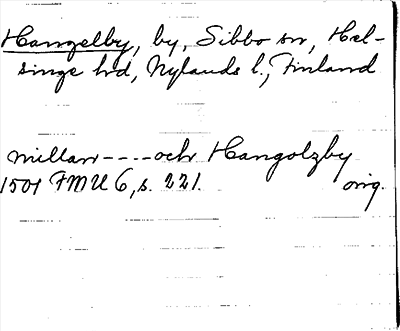 Hangelby, by, Sibbo sn, Hel-
singe hd, Nylands l., Finland
millan ---- och Hangolzby
1501 FMU 6, s. 221. orig.